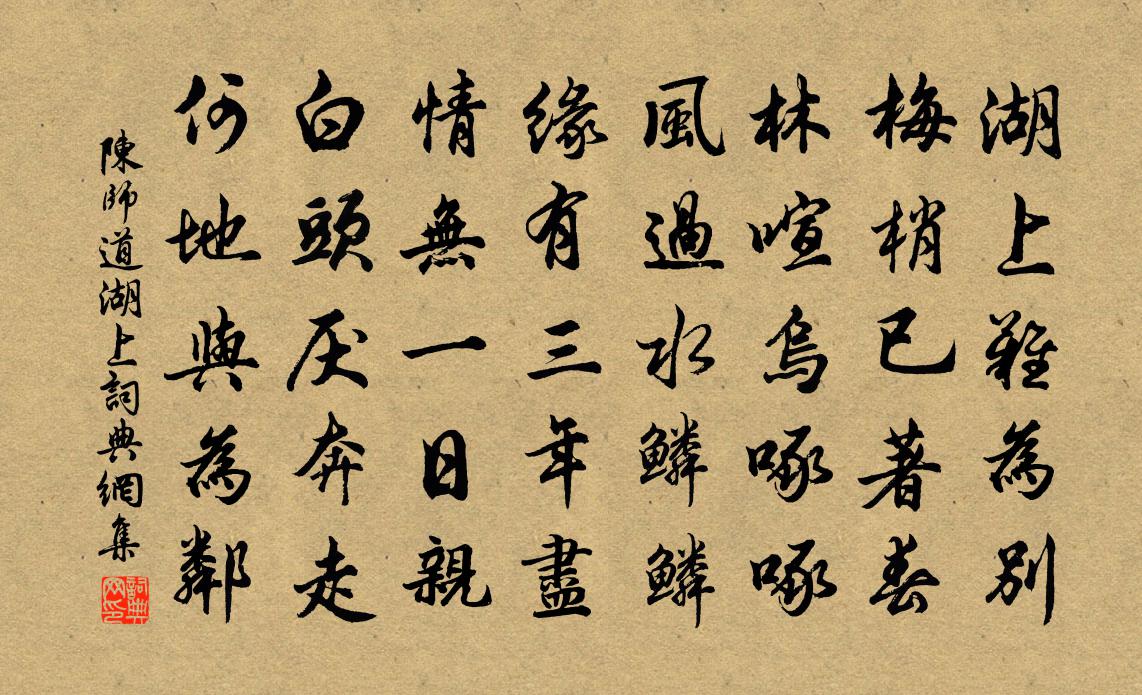 湖上難為別
梅梢已著春
林喧烏啄啄
風過水鱗鱗
緣有三年盡
情無一日親
白頭厌奔走
何地與為鄰
陳師道湖上詞典網集
詞典網印